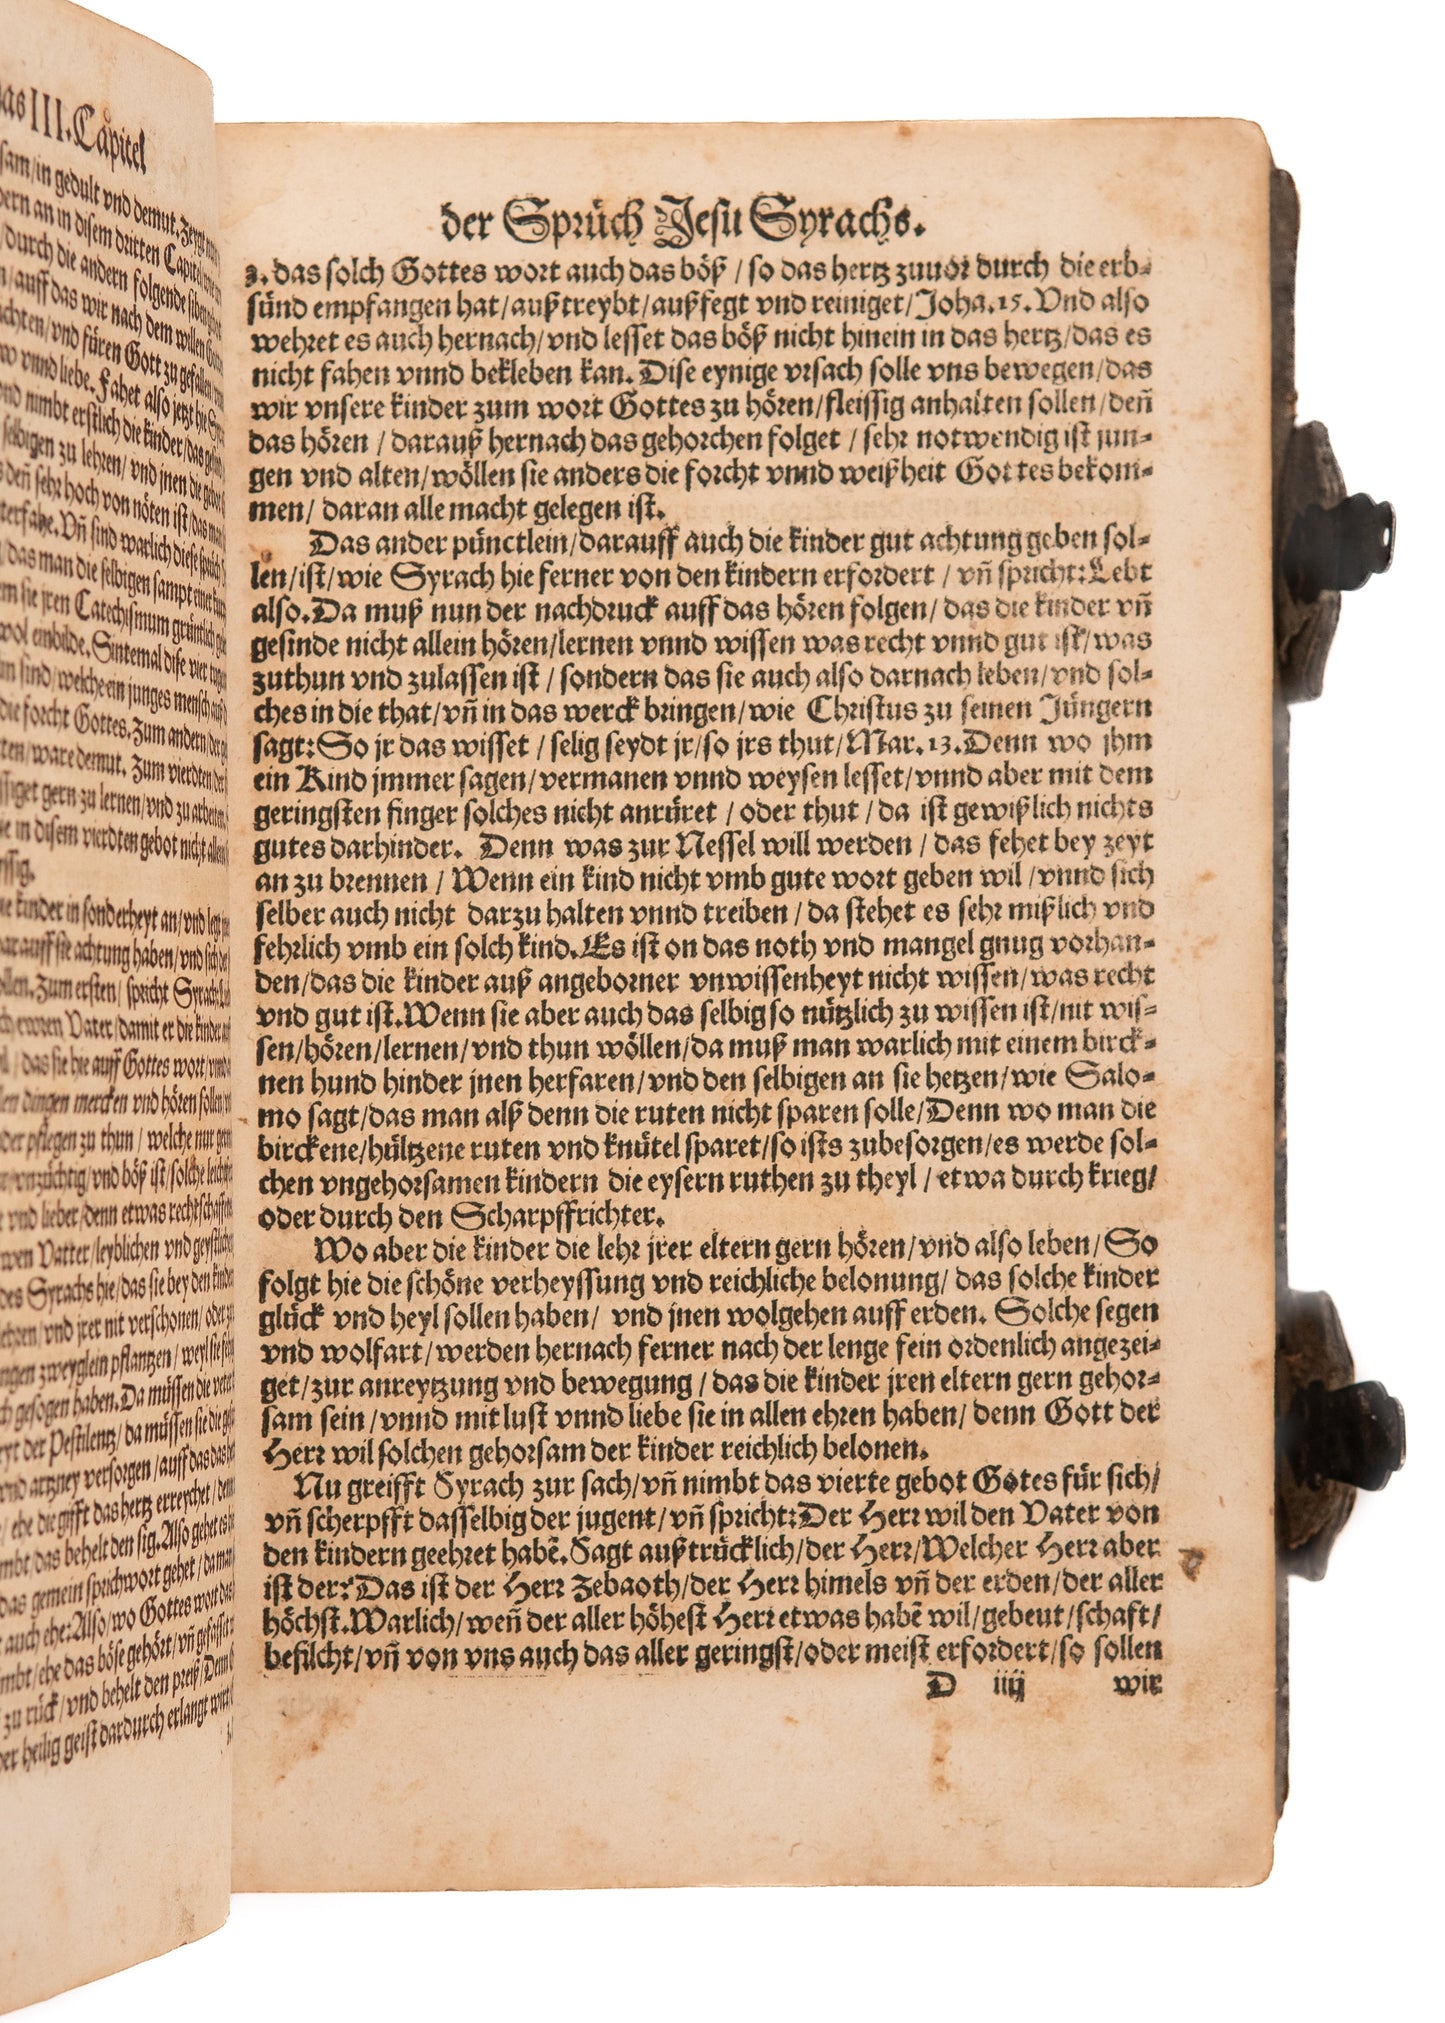 das III. Capitel
sam/in gedult vnd demut. Zeygt
dern an in disem dritten Capitel
durch die andern folgende siben
auff das wir nach dem willen
achten/vnd füren Gott zu gefallen
vnnd liebe. Fahet also jetzt hie
vnd nimbt erstlich die kinder/das
selbigen zu lehren/vnd jnen die
deñ sehr hoch von nöten ist/das man
Vñ sind warlich diese
das man die selbigen sampt einer
sie jren Catechismum gründtlich
wol einbilde. Sintemal dise vier
sind/welche ein junges mensch
die forcht Gottes. Zum andern/der
ware demut. Zum vierdten
gern zu lernen/vnd zu arbeiten
in disem vierdten gebot nicht allein
kinder in sonderheyt an/vnd legt
auff sie achtung haben/vnd sich
Zum ersten/spricht Syrach
ewren Vater/damit er die kinder
das sie hie auff Gottes wort/vnd
dingen mercken vnd hören sollen
pflegen zu thun/welche nur gern
vnzüchtig/vnd böß ist/solche
vnd lieber/denn etwas rechtschaffens
Vatter/leyblichen vnd geystlichen
des Syrachs hie/das sie bey den kindern
vnd jrer nit verschonen/oder
zweyglein pflantzen/weyl sie
gesogen haben. Da müssen die
der Pestilentz/da müssen sie die
vnd artzney versorgen/auff das das
ehe die gifft das hertz erreychet/denn
das behelt den sig. Also gehet es
das gemein sprichwort gehet/da man
auch ehe: Also/wo Gottes wort das
ehe das böse gehört/vñ gefasset
zu rück/vnd behelt den preiß/Denn
der heilig geist dardurch erlangt wirt
der Sprüch Jesu Syrachs.
3. das solch Gottes wort auch das böß/so das hertz zuuor durch die erb-
sünd empfangen hat/außtreybt/außfegt vnd reiniget/Joha.15. Vnd also
wehret es auch hernach/vnd lesset das böß nicht hinein in das hertz/das es
nicht fahen vnnd bekleben kan. Dise eynige vrsach solle vns bewegen/das
wir vnsere kinder zum wort Gottes zu hören/fleissig anhalten sollen/deñ
das hören/darauß hernach das gehorchen folget/sehr notwendig ist jun-
gen vnd alten/wöllen sie anders die forcht vnnd weißheit Gottes bekom-
men/daran alle macht gelegen ist.
Das ander pünctlein/darauff auch die kinder gut achtung geben sol-
len/ist/wie Syrach hie ferner von den kindern erfordert/vñ spricht: Lebt
also. Da muß nun der nachdruck auff das hören folgen/das die kinder vñ
gesinde nicht allein hören/lernen vnnd wissen was recht vnnd gut ist/was
zuthun vnd zulassen ist/sondern das sie auch also darnach leben/vnd sol-
ches in die that/vñ in das werck bringen/wie Christus zu seinen Jüngern
sagt: So jr das wisset/selig seydt jr/so jrs thut/Mar.13. Denn wo jhm
ein Kind jmmer sagen/vermanen vnnd weysen lesset/vnnd aber mit dem
geringsten finger solches nicht anrüret/oder thut/da ist gewißlich nichts
gutes darhinder. Denn was zur Nessel will werden/das fehet bey zeyt
an zu brennen/Wenn ein kind nicht vmb gute wort geben wil/vnnd sich
selber auch nicht darzu halten vnnd treiben/da stehet es sehr mißlich vnd
fehrlich vmb ein solch kind. Es ist on das noth vnd mangel gnug vorhan-
den/das die kinder auß angeborner vnwissenheyt nicht wissen/was recht
vnd gut ist. Wenn sie aber auch das selbig so nützlich zu wissen ist/nit wis-
sen/hören/lernen/vnd thun wöllen/da muß man warlich mit einem birck-
nen hund hinder jnen herfaren/vnd den selbigen an sie hetzen/wie Salo-
mo sagt/das man alß denn die ruten nicht sparen solle/Denn wo man die
birckene/hültzene ruten vnd knütel sparet/so ists zubesorgen/es werde sol-
chen vngehorsamen kindern die eysern ruthen zu theyl/etwa durch krieg/
oder durch den Scharpffrichter.
Wo aber die kinder die lehr jrer eltern gern hören/vnd also leben/So
folgt hie die schöne verheyssung vnd reichliche belonung/das solche kinder
glück vnd heyl sollen haben/ vnd jnen wolgehen auff erden. Solche segen
vnd wolfart/werden hernach ferner nach der lenge fein ordenlich angezei-
get/zur anreytzung vnd bewegung/das die kinder jren eltern gern gehor-
sam sein/vnnd mit lust vnnd liebe sie in allen ehren haben/denn Gott der
Herr wil solchen gehorsam der kinder reichlich belonen.
Nu greifft Syrach zur sach/vñ nimbt das vierte gebot Gotes für sich/
vñ scherpfft dasselbig der jugent/vñ spricht: Der Herr wil den Vater von
den kindern geehret habẽ. Sagt außtrücklich/der Herr/Welcher Herr aber
ist der? Das ist der Herr Zebaoth/der Herr himels vñ der erden/der aller
höchst. Warlich/weñ der aller höhest Herr etwas habẽ wil/gebeut/schaft/
befilcht/vñ von vns auch das aller geringst/oder meist erfordert/so sollen
D iiij wir